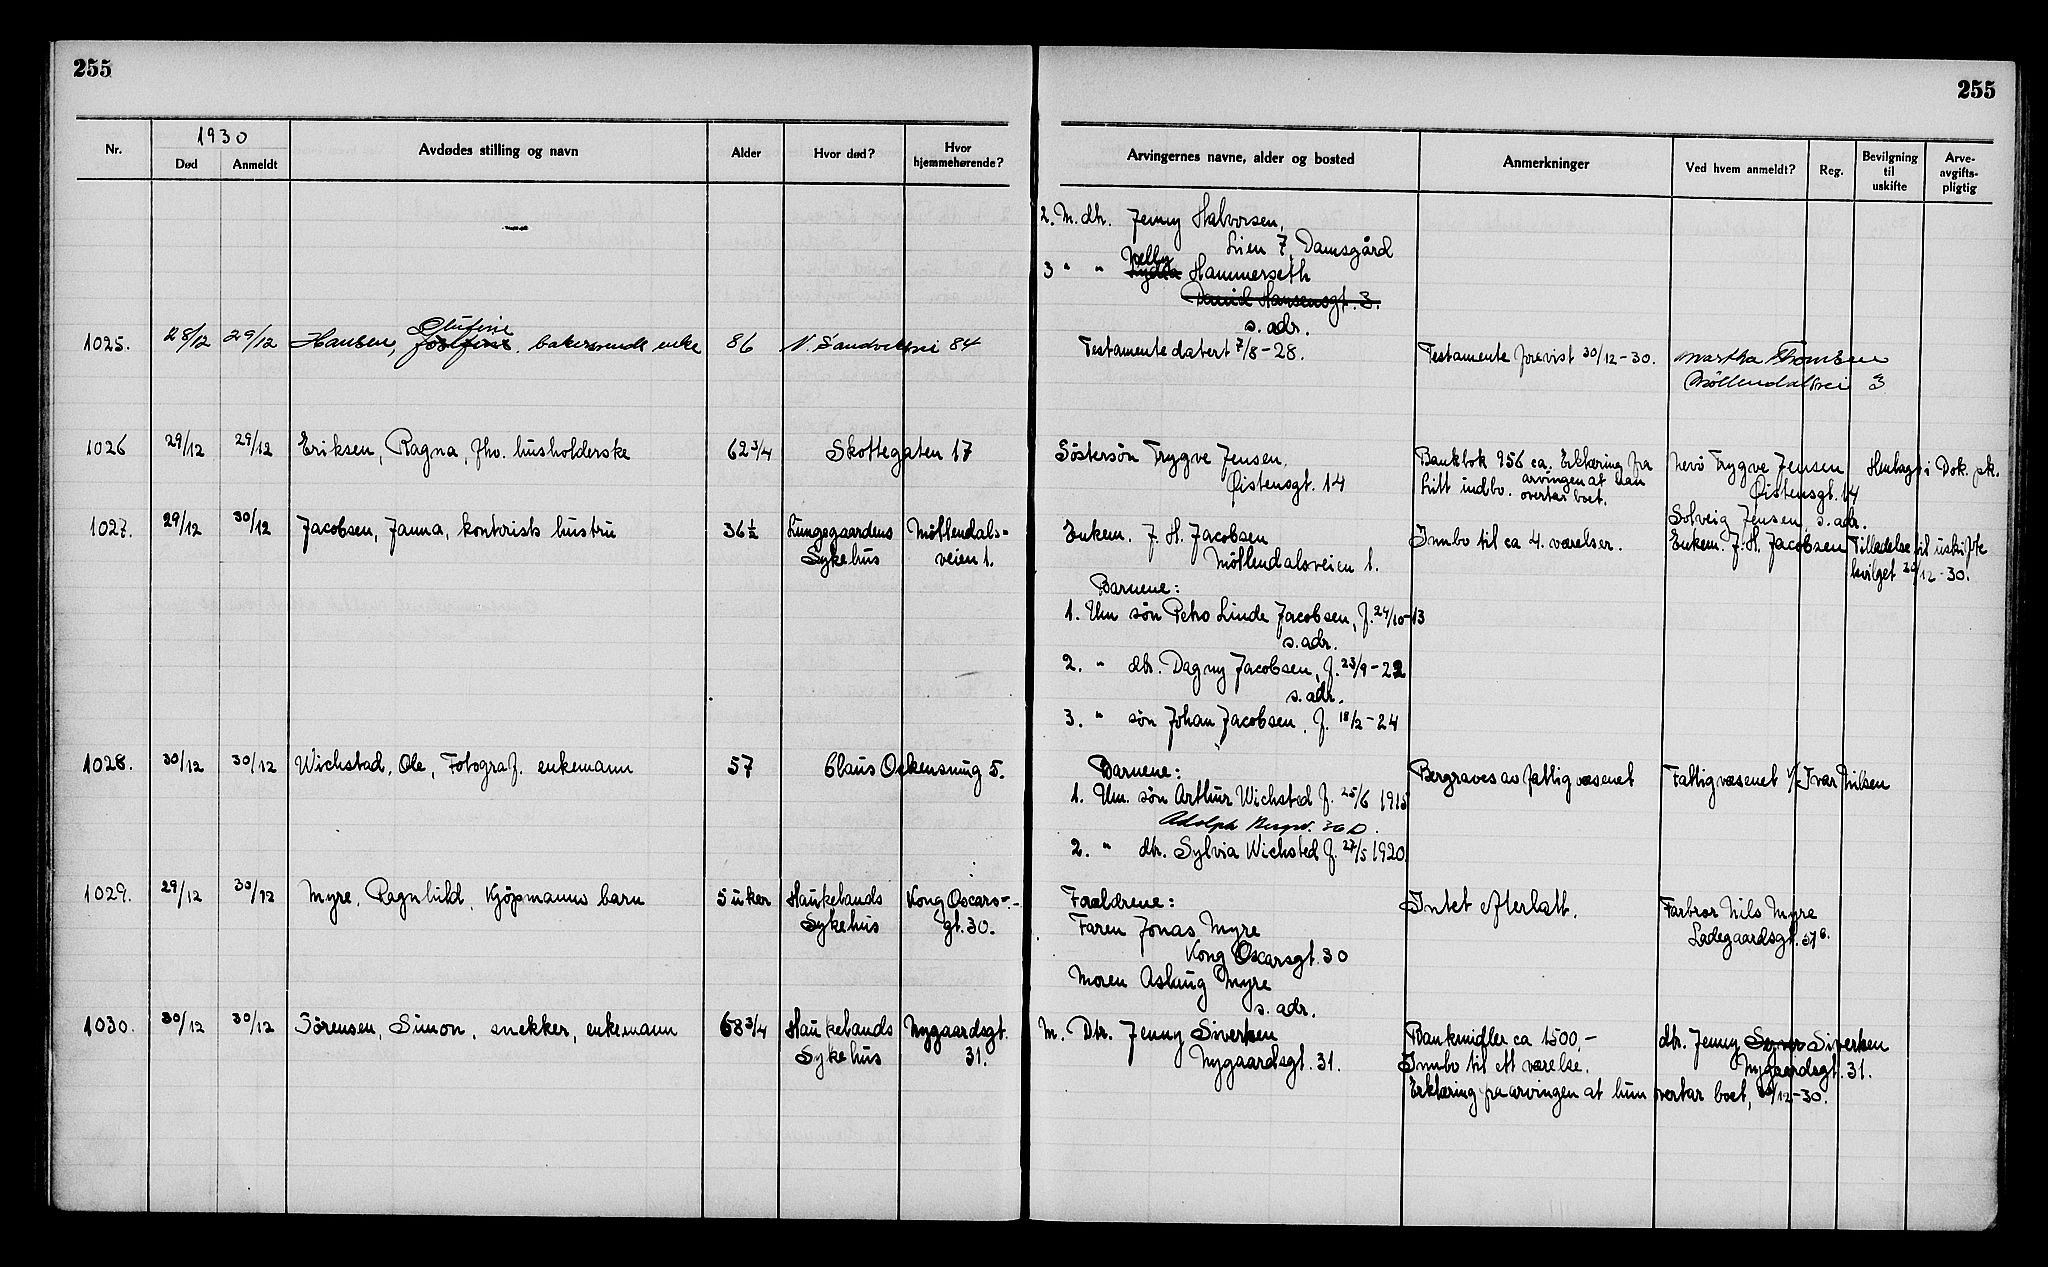 255
255
Nr.
1930
Død
Anmeldt
Avdødes stilling og navn
Alder
Hvor død?
Hvor hjemmehørende?
Arvingernes navne, alder og bosted
Anmerkninger
Ved hvem anmeldt?
Reg.
Bevilgning til uskifte
Arve-avgifts-pligtig
2. M. dtr. Jenny Halvorsen,
Lien 7, Damsgård
3 " " Nelly Hammerseth
David Hansensgt. 3.
s. adr.
1025. 28/12 29/12 Hansen, bakersvends enke 86 N. Sandviksvei 84
Testamente datert 7/8-28.
Testamente forevist 30/12-30.
Martha Thomsen
Møllendalsvei 3
1026 29/12 29/12 Eriksen, Ragna, fhv. husholderske 62 3/4 Skottegaten 17
Søstersøn Trygve Jensen.
Øistensgt. 14
Bankbok 956 ca. Erklæring fra
arvingen at han
Litt indbo. overtar boet.
Nevø Trygve Jensen
Øistensgt. 14
Solveig Jensen, s. adr.
Henlagt i Dok. pk.
1027. 29/12 30/12 Jacobsen, Janna, kontorists hustru 36 1/2 Lungegaardens Møllendals-
Sykehus veien 1.
Enkem. J. H. Jacobsen
Møllendalsveien 1.
Barnene:
1. Um søn Petro Linde Jacobsen, f. 24/10-13
s. adr.
2. " dtr. Dagny Jacobsen, f. 23/9-22
s. adr.
3. " søn Johan Jacobsen, f. 18/2-24
Innbo til ca 4. værelser.
Enkem. J. H. Jacobsen
Tilladelse til uskifte
bevilget 30/12-30.
1028. 30/12 30/12 Wichstad, Ole, Fotograf. enkemann 57 Claus Ockensmug 5.
Barnene:
1. Um. søn Arthur Wichsted f. 25/6 1915
Adolph Bergsv. 36 D.
2. " dtr. Sylvia Wichsted f. 27/5 1920.
Bergraves av fattigvæsenet
Fattigvæsenet v/ Ivar Nilsen
1029. 29/12 30/12 Myre, Ragnhild, Kjøpmanns barn 5 uker Haukelands Kong Oscars-
Sykehus gt. 30.
Forældrene:
Faren Jonas Myre
Kong Oscarsgt. 30
Moren Aslaug Myre
s. adr.
Intet efterlatt.
Farbror Nils Myre
Ladegaardsgt. 57
1030. 30/12 30/12 Sørensen, Simon, snekker, enkemann 68 3/4 Haukelands Nygaardsgt.
Sykehus 31.
M. Dtr. Jenny Sivertsen
Nygaardsgt. 31.
Bankmidler ca 1500,-
Innbo til ett værelse.
Erklæring fra arvingen at hun overtar boet, 30/12-30.
dtr. Jenny Sivertsen
Nygaardsgt. 31.